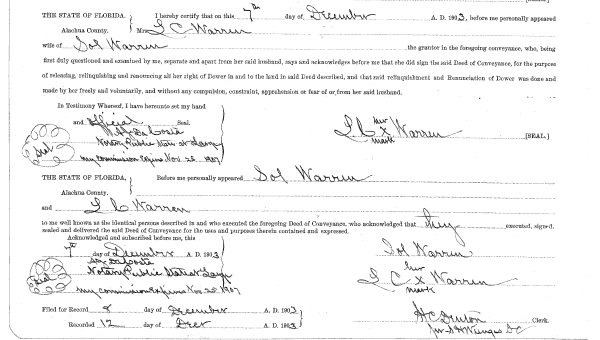 THE STATE OF FLORIDA, I hereby certify that on this 7th day of December A. D. 1903, before me personally appeared
Alachua County. Mrs L C Warren
wife of Sol Warren the grantor in the foregoing conveyance, who, being
first duly questioned and examined by me, separate and apart from her said husband, says and acknowledges before me that she did sign the said Deed of Conveyance, for the purpose
of releasing, relinquishing and renouncing all her right of Dower in and to the land in said Deed described, and that said relinquishment and Renunciation of Dower was done and
made by her freely and voluntarily, and without any compulsion, constraint, apprehension or fear of or from her said husband.
In Testimony Whereof, I have hereunto set my hand
and official Seal.
Notary Public State at Large
my commission Expires Nov. 28 1907
Seal
her
L C x Warren [SEAL.]
mark
THE STATE OF FLORIDA, Before me personally appeared Sol Warren
Alachua County.
and L C Warren
to me well known as the identical persons described in and who executed the foregoing Deed of Conveyance, who acknowledged that they executed, signed,
sealed and delivered the said Deed for the uses and purposes therein contained and expressed.
Acknowledged and subscribed before me, this
7th day of December A. D. 1903
Notary Public State at Large
my commission Expires Nov 28 1907
Seal
Sol Warren
her
L C x Warren
mark
Filed for Record 8 day of December A. D. 1903
Recorded 12 day of Decr 1903
H C Denton Clerk.
D C